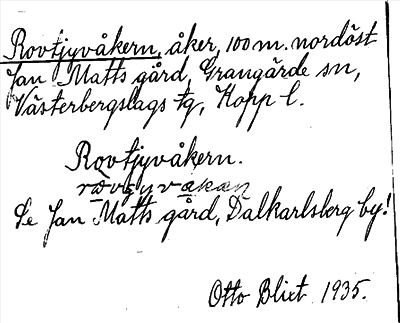 Rovtjyvåkern, åker, 100 m. nordöst
Jan Matts gård, Grangärde sn,
Västerbergslags tg, Kopp l.
Rovtjyvåkern.
Se Jan Matts gård, Dalkarlsberg by!
Otto Blixt 1935.